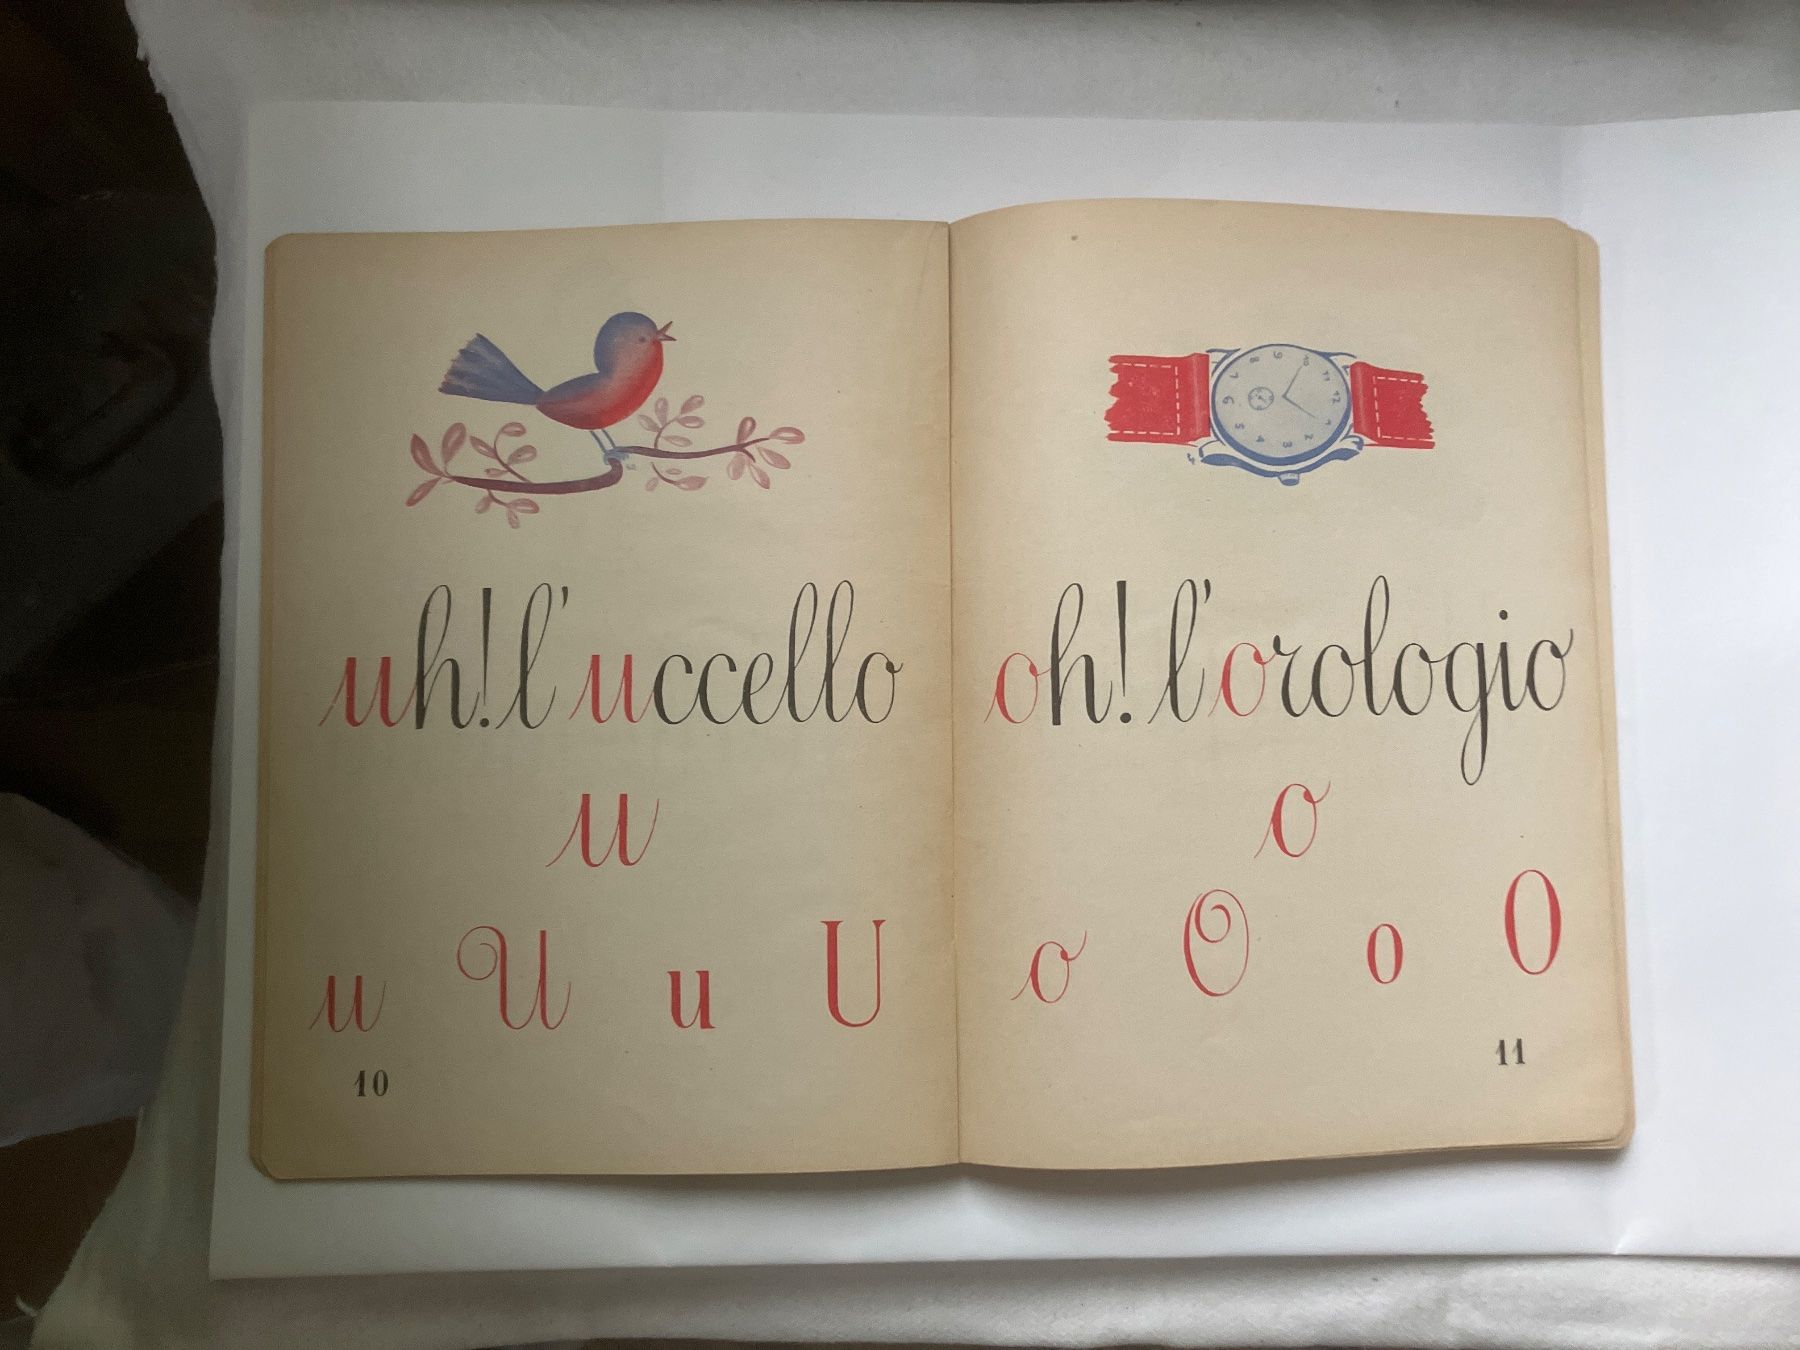 uh! l'uccello
u
u U u U
10
oh! l'orologio
o
o O o O
11